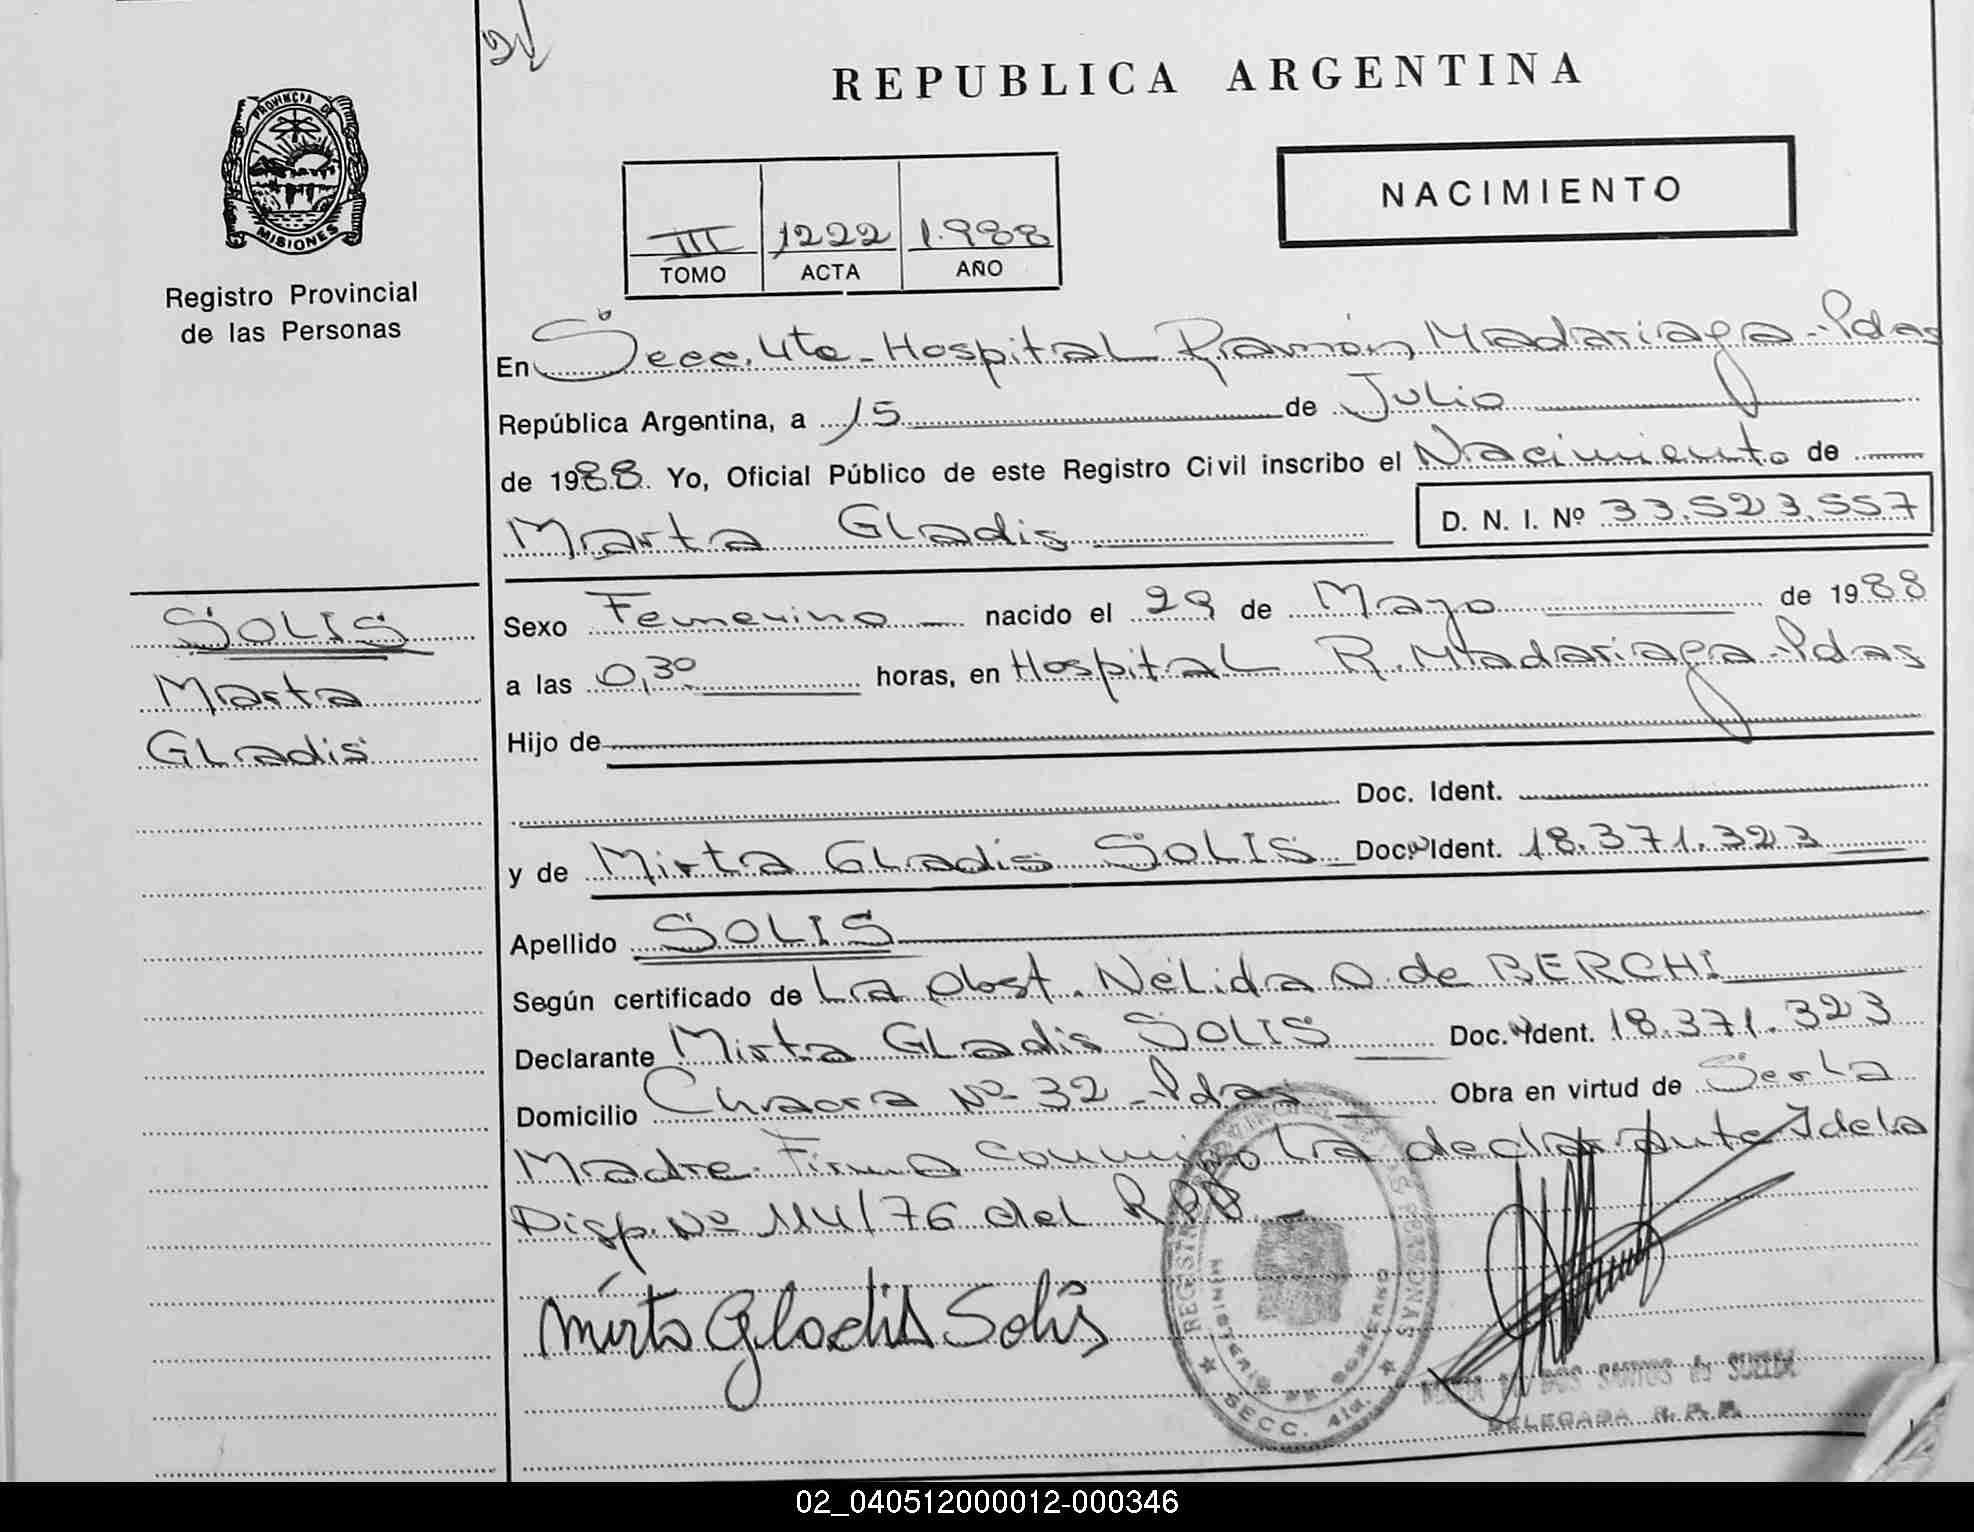 REPUBLICA ARGENTINA
PROVINCIA DE
MISIONES
Registro Provincial
de las Personas
NACIMIENTO
III 1222 1.988
TOMO ACTA AÑO
En Secc. 4ta - Hospital Ramón Madariaga - Pdas
República Argentina, a 15 de Julio
de 1988. Yo, Oficial Público de este Registro Civil inscribo el Nacimiento de
Marta Gladis D. N. I. Nº 33.523.557
SOLIS
Marta
Gladis
Sexo Femenino nacido el 29 de Mayo de 1988
a las 0,30 horas, en Hospital R. Madariaga - Pdas
Hijo de
Doc. Ident.
y de Mirta Gladis SOLIS Doc. Ident. 18.371.323
Apellido SOLIS
Según certificado de La Obst. Nélida O. de BERCHI
Declarante Mirta Gladis SOLIS Doc. Ident. 18.371.323
Domicilio Chacra Nº 32 - Pdas Obra en virtud de Ser La
Madre. Firma conmigo La declarante I de la
Disp. Nº 114/76 del R.P.P.
Mirta Gladis Solis
MINISTERIO DE GOBIERNO
SECC. 4ta.
DOS SANTOS de SUELDO
DELEGADA R. P. P.
02_040512000012-000346